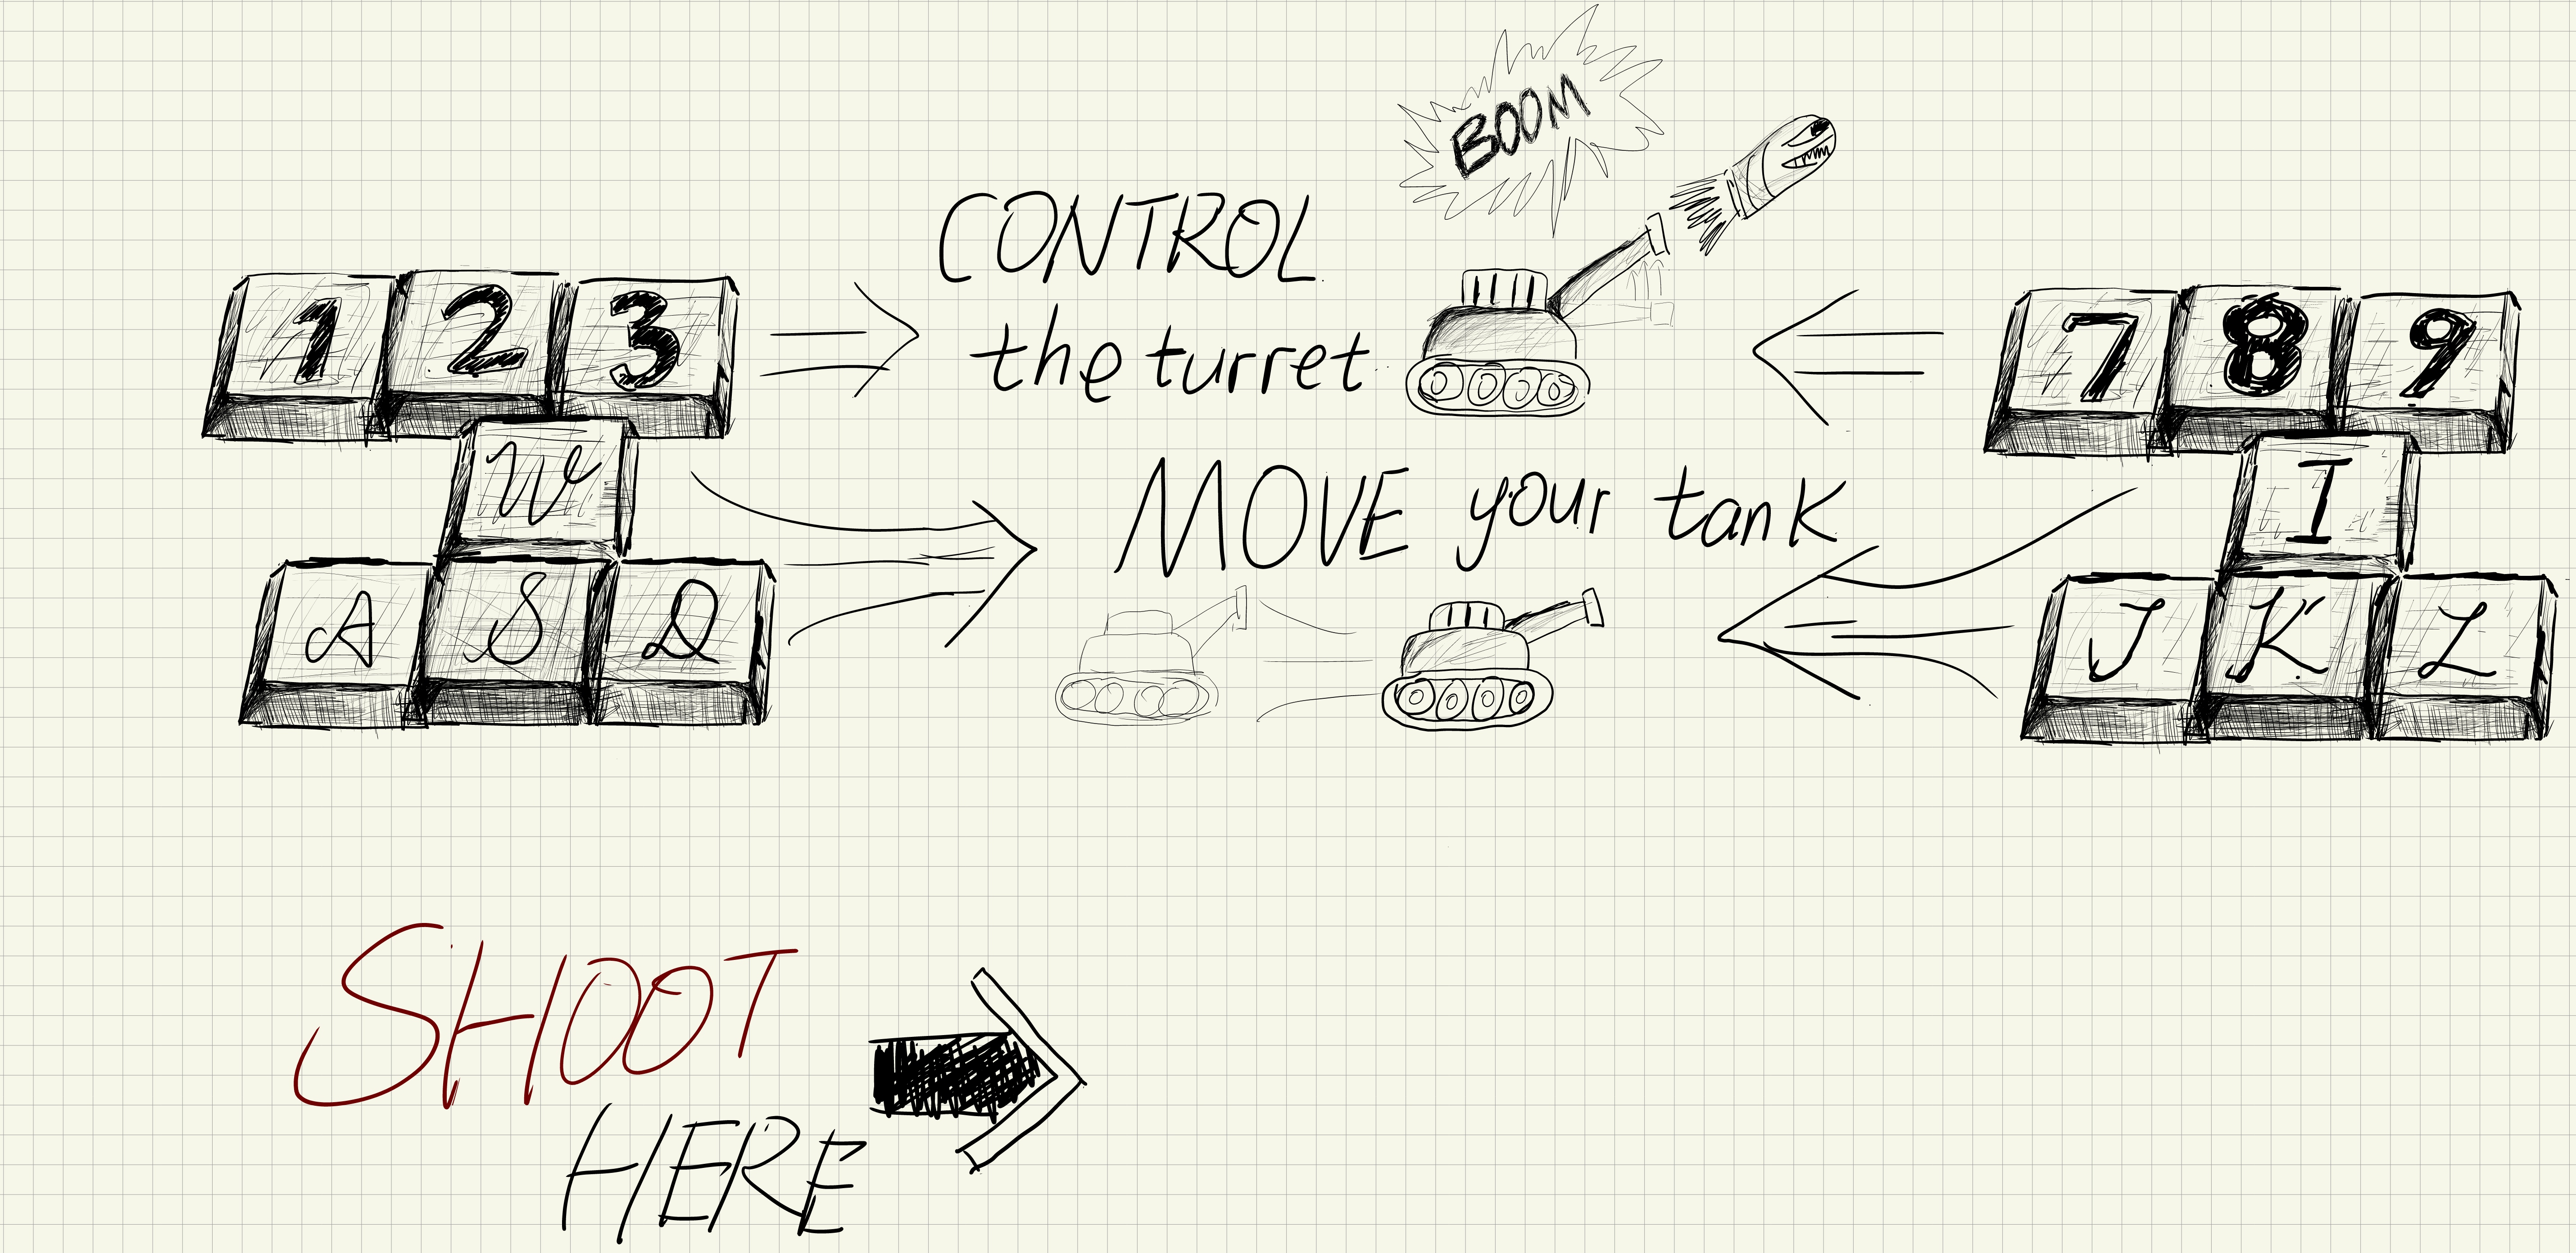 BOOM
CONTROL
the turret
1 2 3
7 8 9
W
I
MOVE your tank
A S D
J K L
SHOOT
HERE